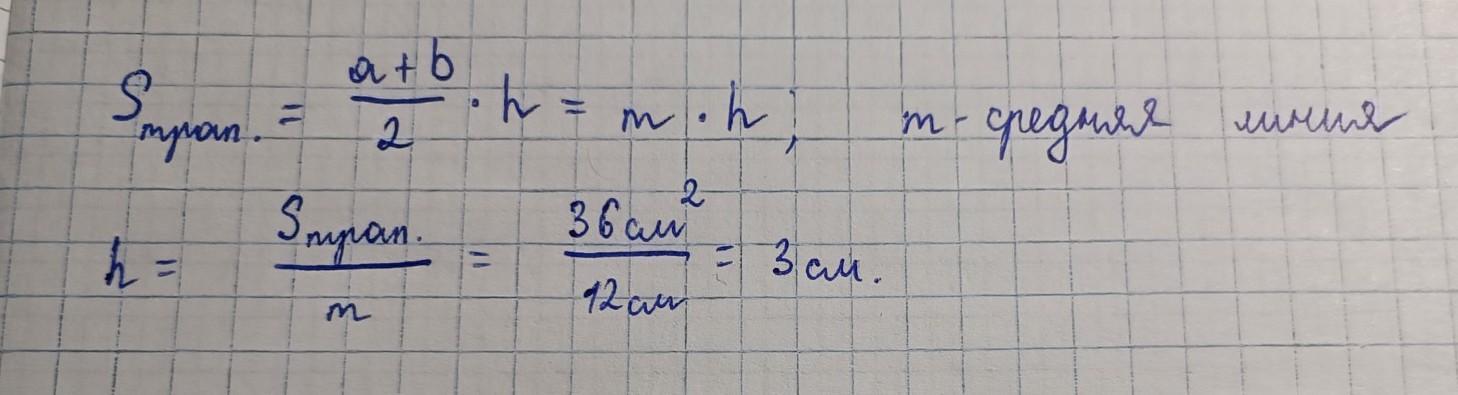 Sтрап. = a+b/2 · h = m · h; m - средняя линия
h = Sтрап./m = 36 см²/12 см = 3 см.